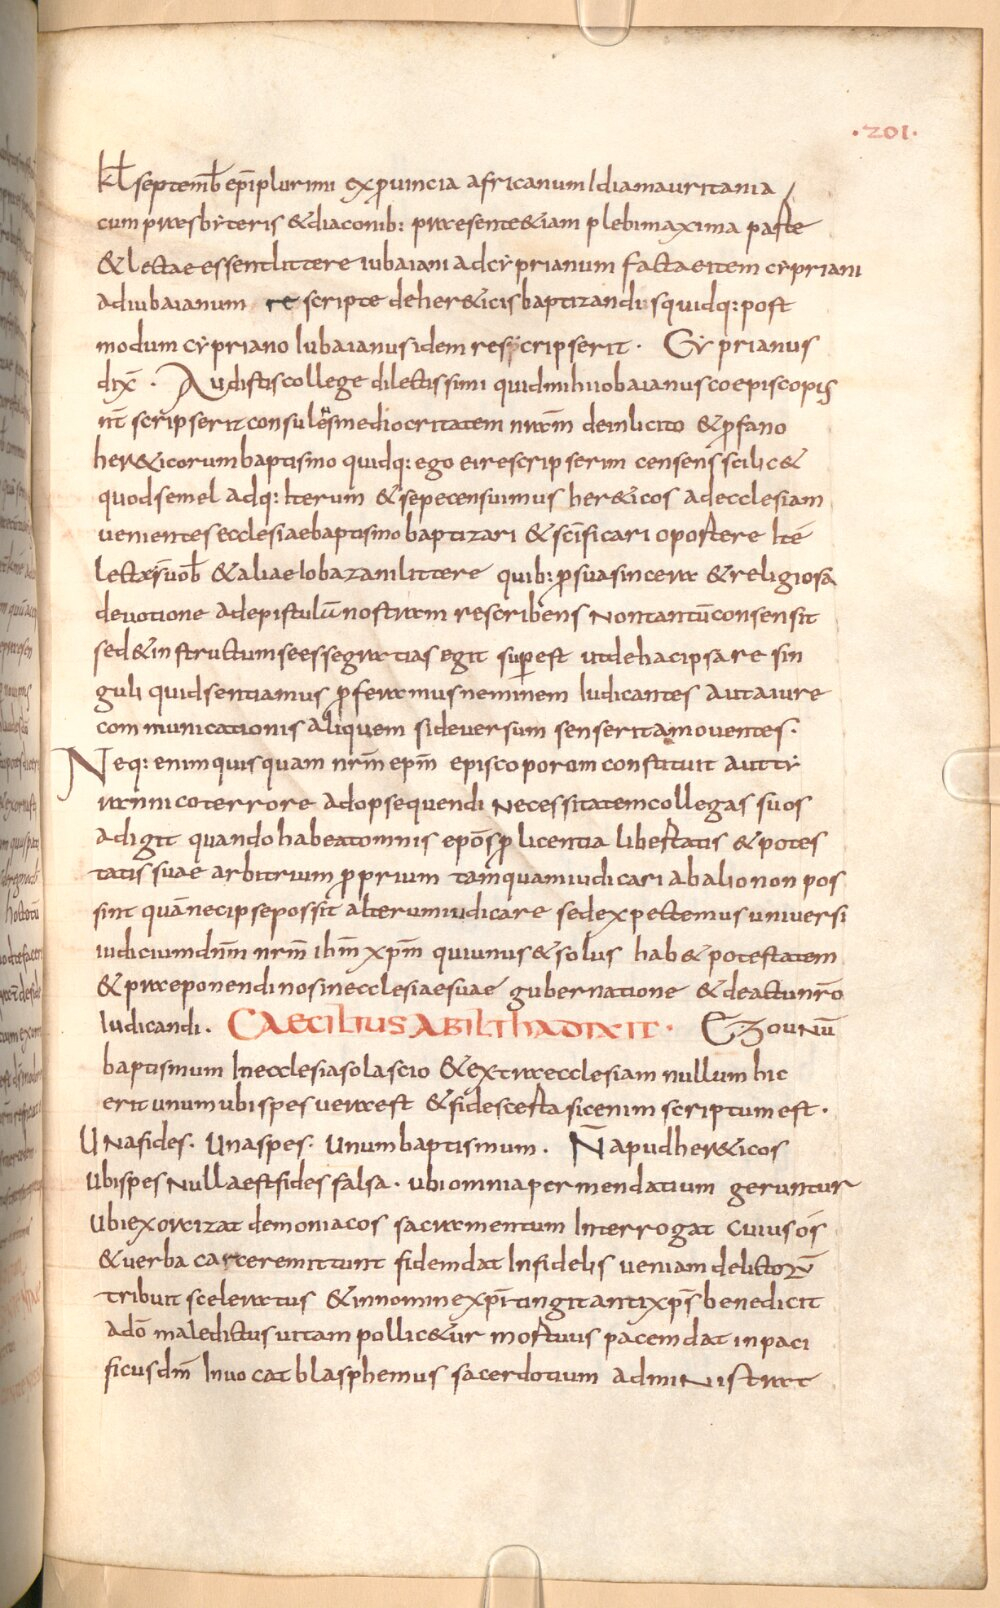 ·201·
kl septemb epī plurimi ex ꝓuincia africa numidia mauritania
cum presbẏteris & diaconib: presente & iam plebi maxima parte
& lectae essent littere iubaiani ad cẏprianum facta e item cẏpriani
ad iubaianum re scripte de her&icis baptizandis quidq: post
modum cẏpriano Iubaianus idem rescripserit · Cẏprianus
dix̄ · Audistis college dilectissimi quid mihi iobaianus coepiscopus
nr̄ scripserit consulens mediocritatem nr̄am de inlicito & ꝓfano
her&icorum baptismo quidq: ego ei rescripserim censens scilic&
quod semel adq: Iterum & sepe censuimus her&icos ad ecclesiam
uenientes ecclesiae baptismo baptizari & scīficari oportere Itē
lectae s̄ uob & aliae Iobazani littere quib: ꝓ sua sincera & religiosa
deuotione ad epistulā nostram rescribens Non tantū consensit
sed & instructum se esse gratias egit superest ut de hac ipsa re sin
guli quid sentiamus ꝓferamus neminem Iudicantes aut a iure
communicationis aliquem si deuersum senserit amouentes·
Neq: enim quisquam nr̄m epm̄ episcoporum constituit aut tẏ
rannico terrore ad opsequendi Necessitatem collegas suos
adigit quando habeat omnis epōs ꝓ licentia libertatis & potes
tatis suae arbitrium ꝓprium tamquam iudicari ab alio non pos
sint quā nec ipse possit alterum iudicare sed expectemus uniuersi
iudicium dnm̄ nrm̄ ihm̄ xpm̄ qui unus & solus hab& potestatem
& preponendi nos in ecclesiae suae gubernatione & de actu nr̄o
Iudicandi · CAECILIUS A BILTHA DIXIT · Ego unū
baptismum In ecclesia sola scio & extra ecclesiam nullum hic
erit unum ubi spes uera est & fides certa sic enim scriptum est ·
Una fides · Una spes · Unum baptismum · N̄ apud her&icos
Ubi spes Nulla est fides falsa · ubi omnia per mendatium geruntur
Ubi exorcizat demoniacos sacramentum Interrogat cuius os
& uerba carcerem ittunt fidem dat Infidelis ueniam delictorū
tribuit sceleratus & in nomine xpī tingit antixps̄ benedicit
a dō maledictus uitam pollic&ur mortuus pacem dat inpaci
ficus dm̄ Inuocat blasphemus sacerdotium administrat